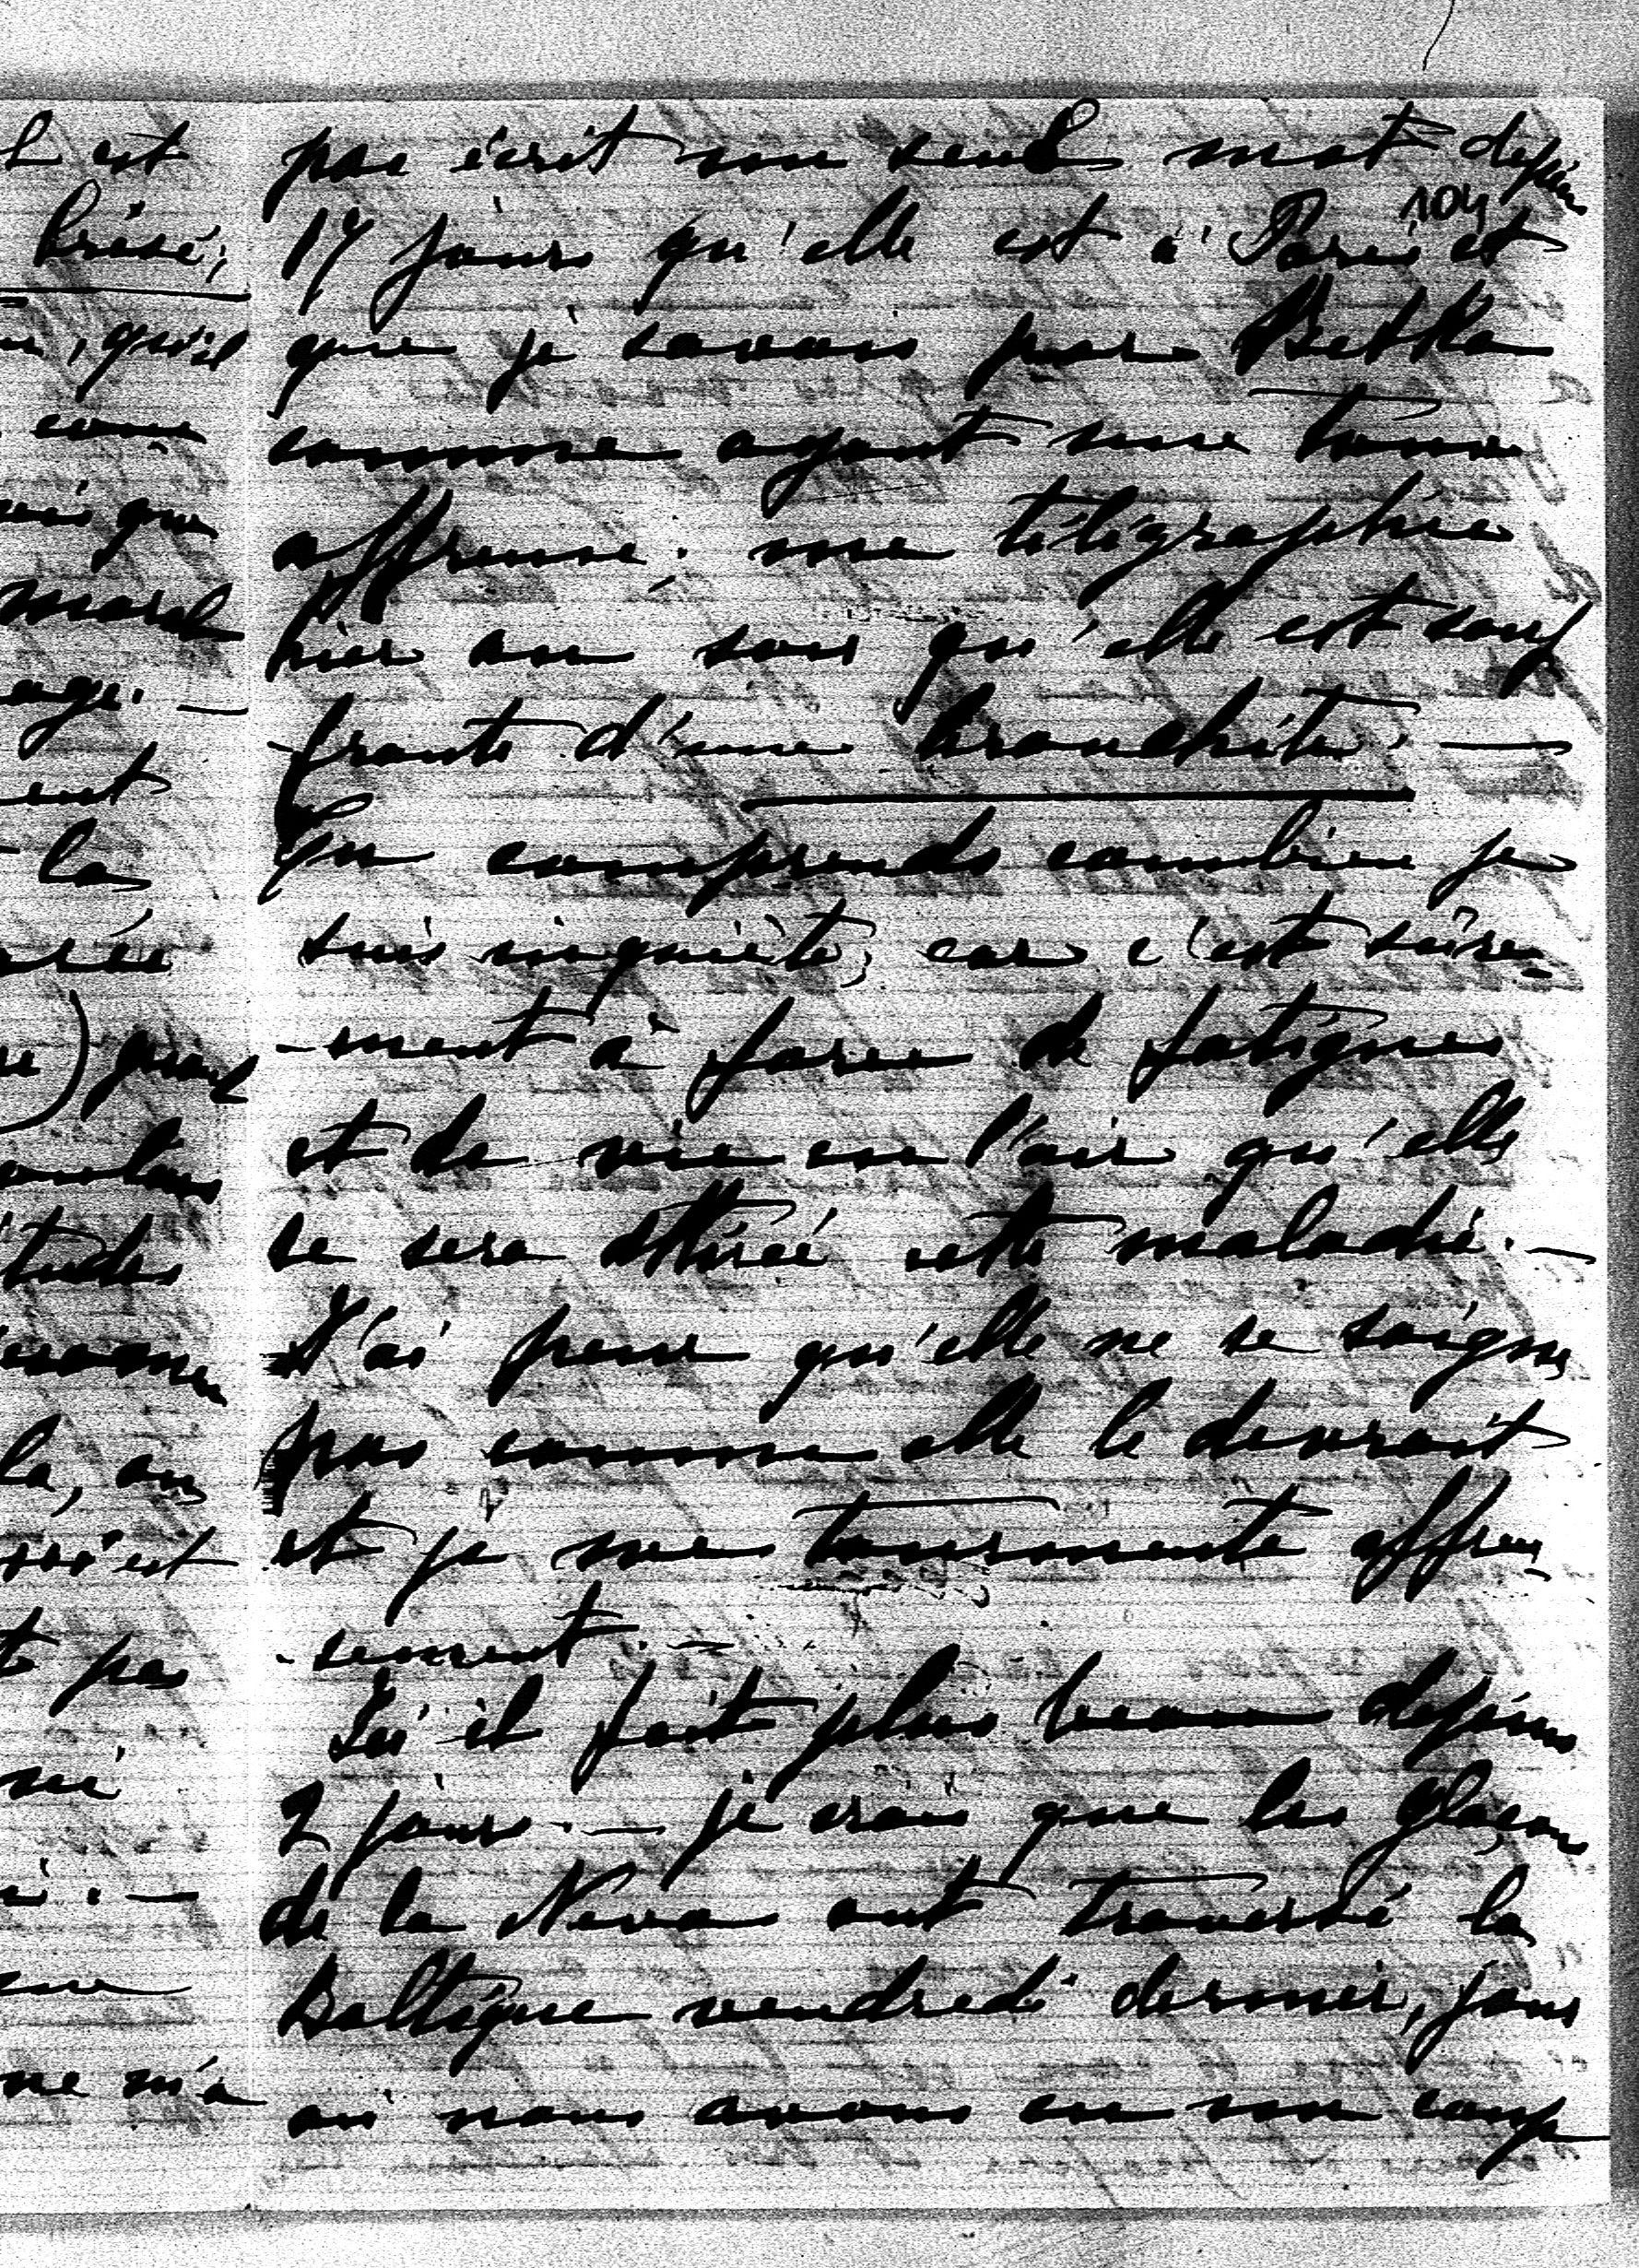 pas écrit un seul mot depuis
104
17 jours qu'elle est à Paris et
que je savais par Betka
comme ayant une toux
affreuse; me télégraphie
hier au soir qu'elle est souf
-frante d'une bronchite. —
Tu comprends combien je
suis inquiète, car c'est sûre-
-ment à force de fatigues
et de vie en l'air qu'elle
se sera attirée cette maladie. —
J'ai peur qu'elle ne se soigne
pas comme elle le devrait
et je me tourmente affreu-
-sement. —
Ici il fait plus beau depuis
2 jours. — je crois que les glaçons
de la Neva ont traversé la
Baltique vendredi dernier, jour
où nous avons eu un coup
l est
brisé;
, qu'il
marche
age. —
ent
la
rée
) quand
tudes
la, on
pas
ne m'a